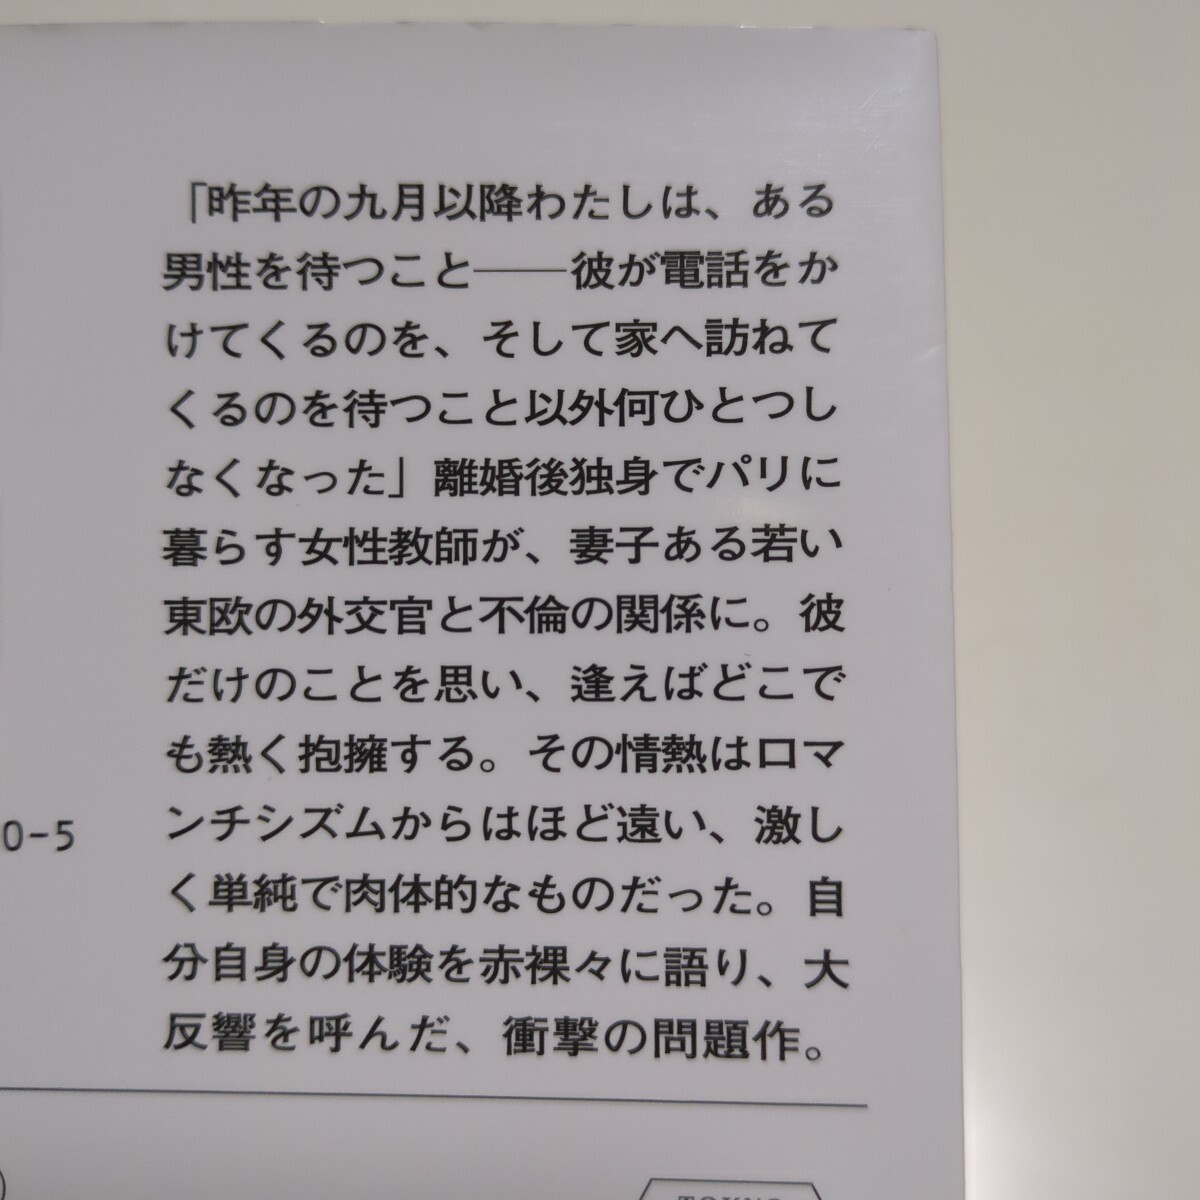 「昨年の九月以降わたしは、ある
男性を待つこと――彼が電話をか
けてくるのを、そして家へ訪ねて
くるのを待つこと以外何ひとつし
なくなった」離婚後独身でパリに
暮らす女性教師が、妻子ある若い
東欧の外交官と不倫の関係に。彼
だけのことを思い、逢えばどこで
も熱く抱擁する。その情熱はロマ
ンチシズムからはほど遠い、激し
く単純で肉体的なものだった。自
分自身の体験を赤裸々に語り、大
反響を呼んだ、衝撃の問題作。
0-5